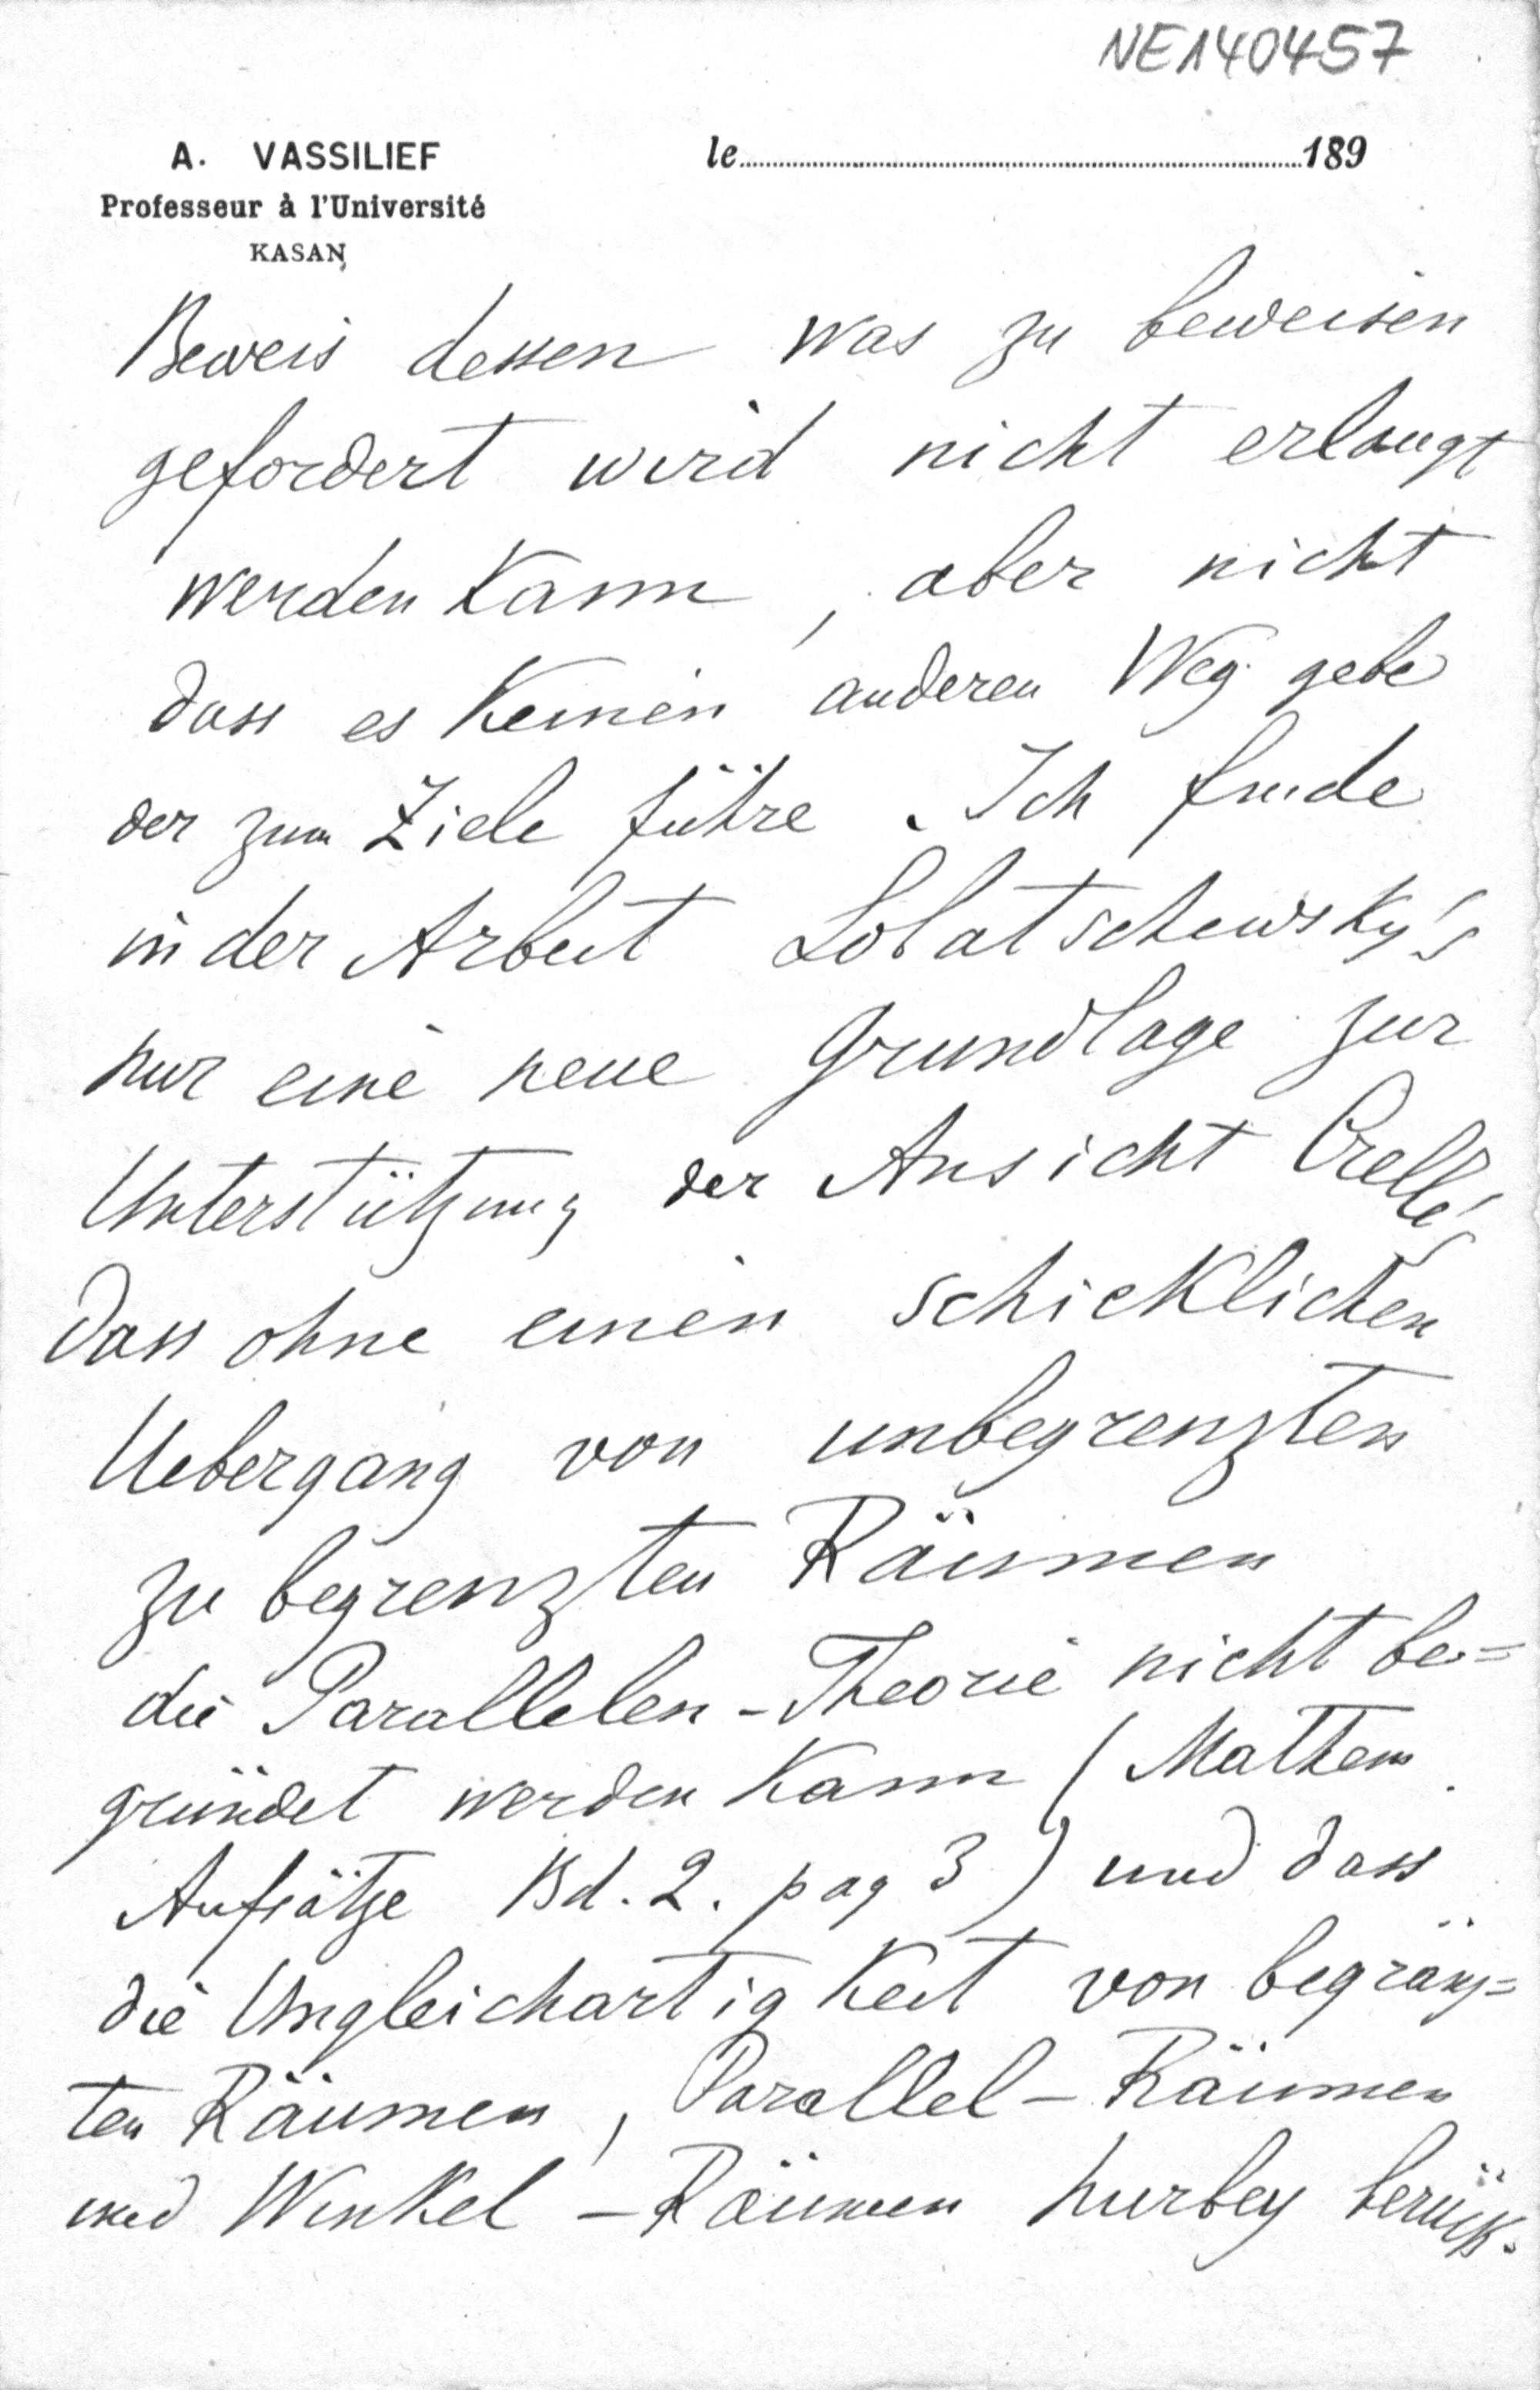 NE140457
A. VASSILIEF
le 189
Professeur à l'Université
KASAN
Beweis dessen was zu beweisen
gefordert wird nicht erlangt
werden kann, aber nicht
dass es keinen anderen Weg gebe
der zum Ziele führe. Ich finde
in der Arbeit Lobatschewsky's
nur eine neue Grundlage zur
Unterstützung der Ansicht Crelle's
dass ohne einen schicklichen
Uebergang von unbegrenzten
zu begrenzten Räumen
die Parallelen-Theorie nicht be=
gründet werden kann (Mathem.
Aufsätze Bd. 2. pag 3) und dass
die Ungleichartigkeit von begränz=
ten Räumen, Parallel-Räumen
und Winkel-Räumen hierbey berück-